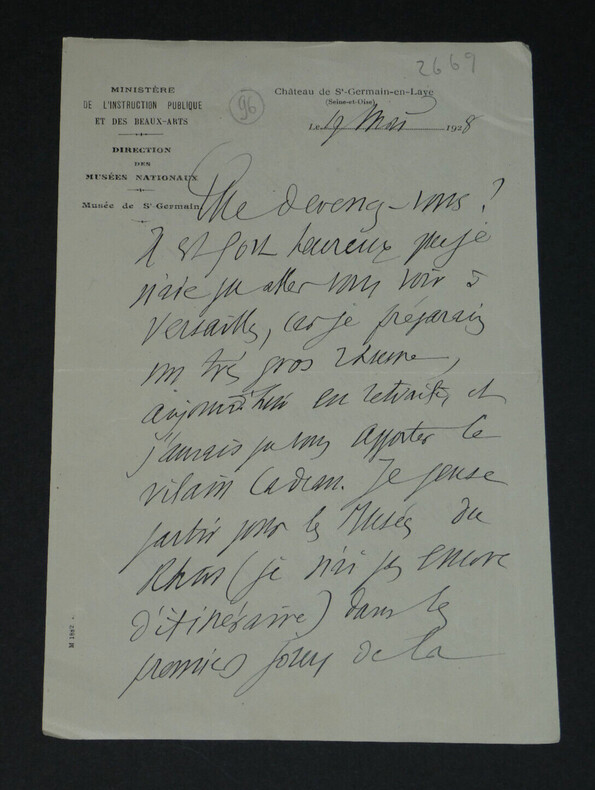 2669
96
MINISTÈRE
DE L'INSTRUCTION PUBLIQUE
ET DES BEAUX-ARTS
DIRECTION
DES
MUSÉES NATIONAUX
Musée de St Germain
Château de St-Germain-en-Laye
(Seine-et-Oise)
Le 19 Mai 1928
Que devenez-vous ?
Il est fort heureux que je
n'aie pu aller vous voir à
Versailles, car je préparais
un très gros rhume,
aujourd'hui en retraite, et
j'aurais pu vous apporter ce
vilain cadeau. Je pense
partir pour les Musées du
Rhin (je n'ai pas encore
d'itinéraire) dans les
premiers jours de la
M 1882